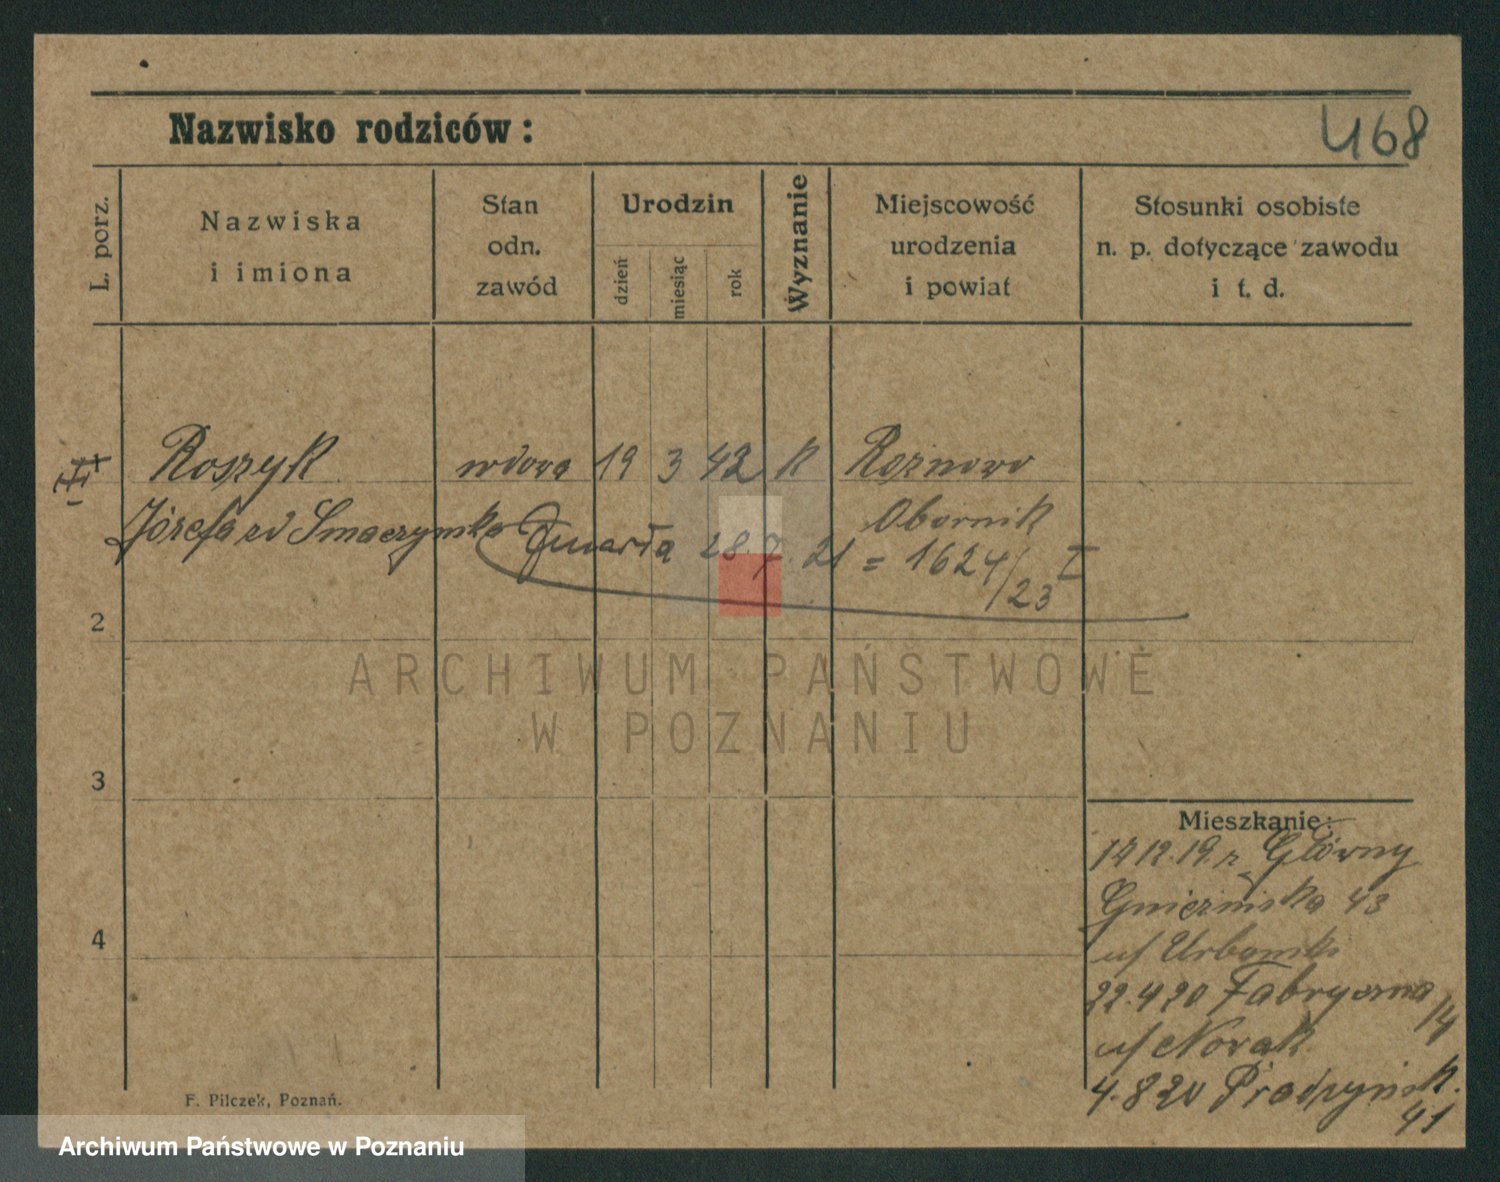 Nazwisko rodziców :
468
L. porz.
Nazwiska
i imiona
Stan
odn.
zawód
Urodzin
dzień
miesiąc
rok
Wyznanie
Miejscowość
urodzenia
i powiat
Stosunki osobiste
n. p. dotyczące zawodu
i t. d.
Roszyk wdowa 19 3 42 k Roznowo
Józefa zd Smaczyńska Obornik
Zmarła 28.7.21 = 1624/23 I
2
3
4
ARCHIWUM PAŃSTWOWE
W POZNANIU
Mieszkanie:
14 12.19 r. Główny
Gnieźnińska 43
u/ Urbanik
22.4 20 Fabryczna 14
u/ Nowak
4.8 20 Prądzyńsk. 41
F. Pilczek, Poznań.
Archiwum Państwowe w Poznaniu